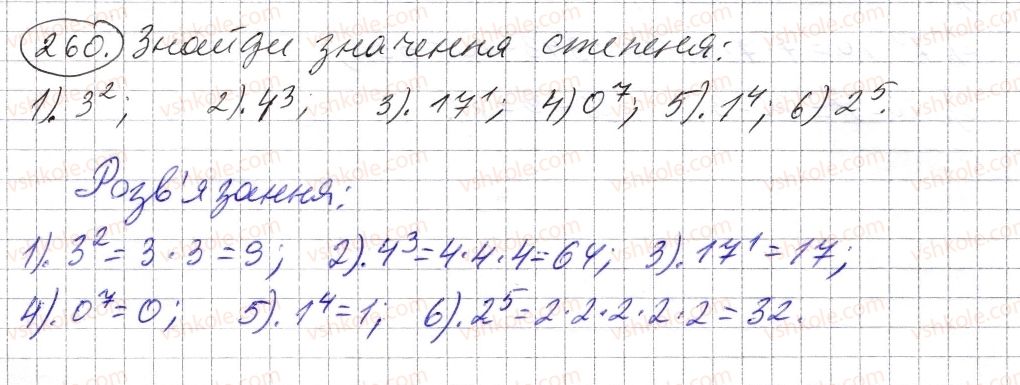 260. Знайди значення степеня:
1). 3²; 2). 4³; 3). 17¹; 4) 0⁷; 5). 1⁴; 6) 2⁵.
Розв'язання:
1). 3² = 3 · 3 = 9; 2). 4³ = 4 · 4 · 4 = 64; 3). 17¹ = 17;
4). 0⁷ = 0; 5). 1⁴ = 1; 6). 2⁵ = 2 · 2 · 2 · 2 · 2 = 32.